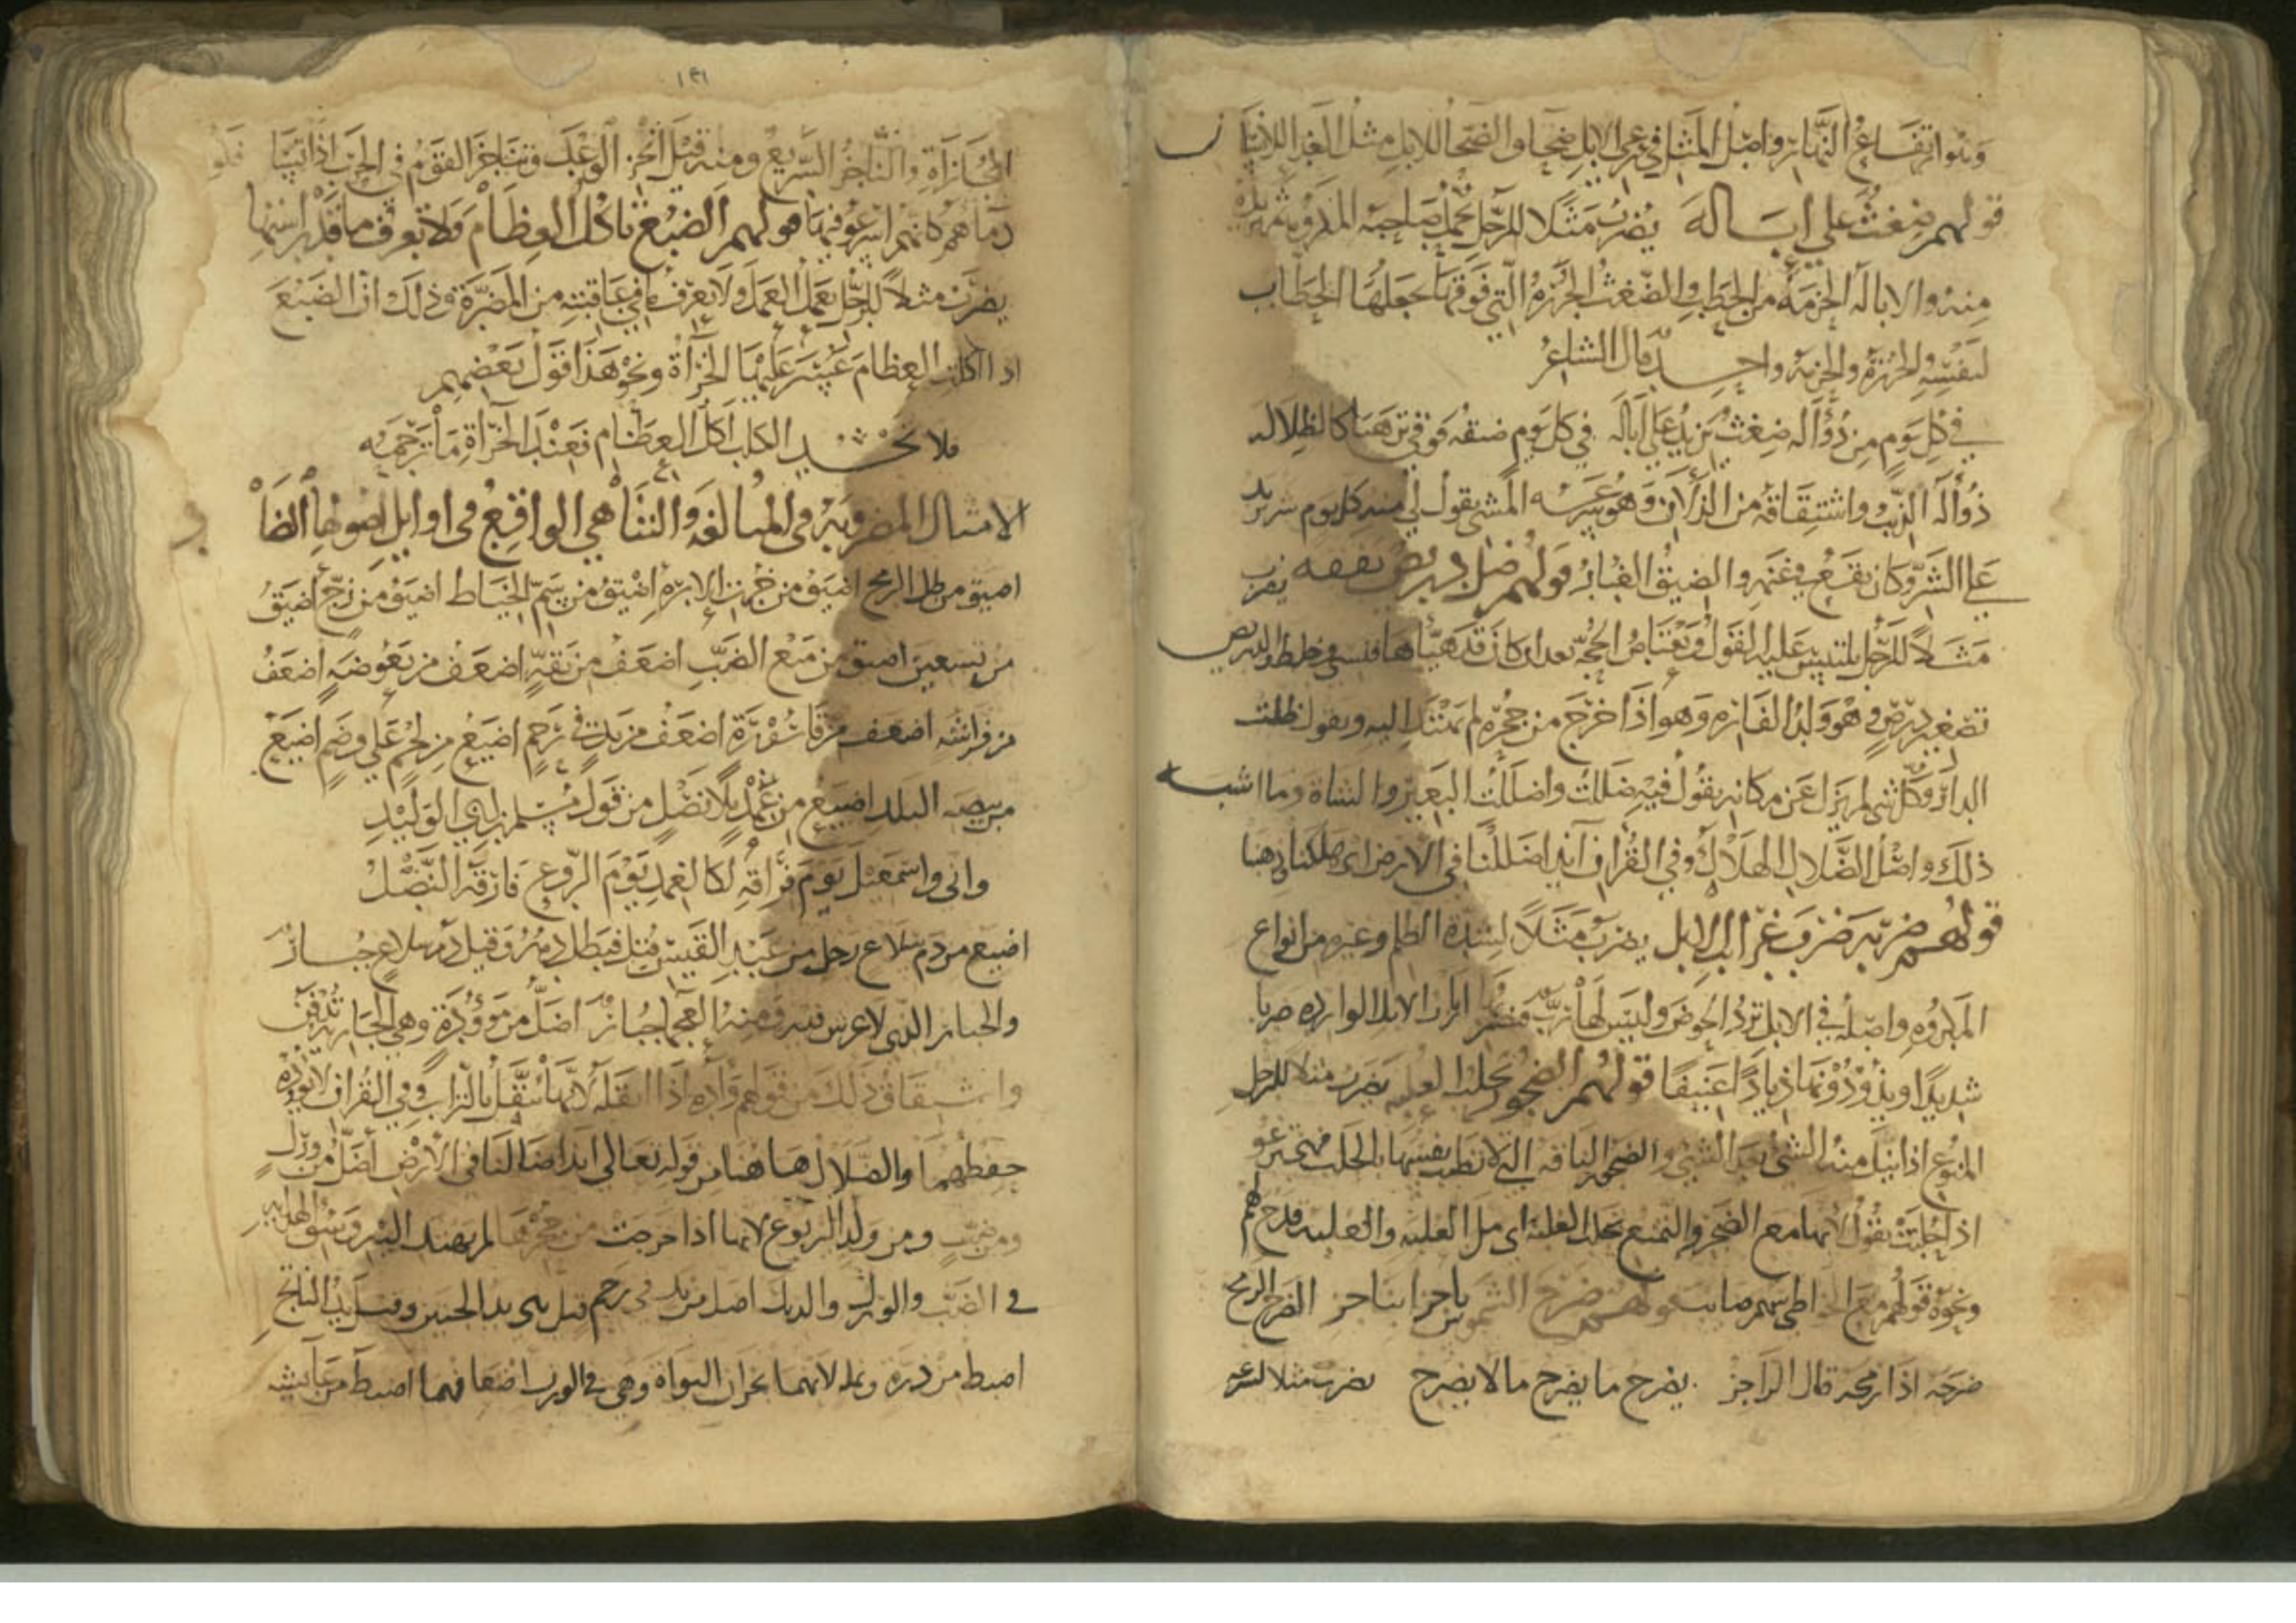 وهو ارتفاع النهار واصل المثل في رعي الابل ضحاء والضحاء للابل مثل الغداء للانسان
قولهم ضغث على ابالة يضرب مثلا للرجل يحمل صاحبه المكروه ثم يزيده
منه والابالة الحزمة من الحطب والضغث الجرزة التي فوقها يجعلها الحطاب
لنفسه والجرزة والحزمة واحد قال الشاعر
في كل يوم من ذؤاله ضغث يزيد على اباله في كل يوم صيقة فوقي ترهيا كالظلاله
ذؤالة الذئب واشتقاقه من الذألان وهو سرعة المشي يقول لي منه كل يوم شر يزيد
على الشر وكان يقع في غنمه والصيق الغبار قولهم ضل دريص نفقه يضرب
مثلا للرجل يلتبس عليه القول ويعتاص الحجة بعد ان كان قد هيأها فنسي وخلط والدريص
تصغير درص وهو ولد الفارة وهو اذا خرج من جحره لم يهتد اليه ويقول ضللت
الدار وكل شي لم يزل عن مكانه يقول فيه ضللت واضللت البعير والشاة وما اشبه
ذلك واصل الضلال الهلاك وفي القران ائذا ضللنا في الارض اي هلكنا وذهبنا
قولهم ضربه ضرب غرائب الابل يضرب مثلا لشدة الظلم وغيره من انواع
المكروه واصله في الابل ترد الحوض وليس لها رب ارباب الابل الواردة ضربا
شديدا ويذودونها ذيادا عنيفا قولهم الضجور تحلب العلبة يضرب مثلا للرجل
المنوع اذا نيل منه الشي بعد الشي والضجور الناقة التي لا تطيب نفسها بالحلب فهي ترغو
اذا حلبت يقول انها مع الضجر والتمنع تحلب العلبة اي مل العلبة والعلبة قدح لهم
ونحوه قولهم مع الخواطي سهم صايب قولهم ضرح الشموس ناجزا بناجز الضرح الرمح
ضرحه اذا رمحه قال الراجز يضرح ما يضرح ما لا يضرح يضرب مثلا لسرعة
١٣١
المجازاة والناجز السريع ومنه قيل انجز الوعد وتناجز القوم في الحرب اذا تسافكوا
دماهم كانهم اسرعوا فيها قولهم الضبع تاكل العظام ولا تعرف ما قدر استها
يضرب مثلا للرجل يعمل العمل ولا يعرف ما في عاقبته من المضرة وذلك ان الضبع
اذا اكلت العظام عسر عليها الخرآة ونحو هذا قول بعضهم
فلا الكلب اكل العظام فعند الخرآة ما ترحمه
الامثال المضروبة في المبالغة والتناهي الواقع في اوايل اصولها الضاد
اضيق من ظل الرمح اضيق من خرت الابرة اضيق من سم الخياط اضيق من زج اضيق
من تسعين اضيق من مبعج الضب اضعف من بقة اضعف من بعوضة اضعف
من فراشة اضعف من قارورة اضعف من يد في رحم اضيع من لحم على وضم اضيع
من بيضة البلد اضيع من غمد بلا نصل من قول مسلم بن الوليد
واني واسمعيل يوم فراقه لكالغمد يوم الروع فارقه النصل
اضيع من دم سلاغ رجل من عبد القيس قتل فبطل دمه وقيل دم سلاغ جبار
والجبار الذي لا غرم فيه ومنه العجما جبار اضل من موؤدة وهي الجارية تدفن
واشتقاق ذلك من قولهم وأده اذا اثقله لانها تثقل بالتراب وفي القران لا يؤده
حفظهما والضلال هاهنا من قوله تعالى ائذا ضللنا في الارض اضل من ورل
ومن ضب ومن ولد اليربوع لانها اذا خرجت من جحرها لم يهتد اليه وسوء الهداية
في الضب والورل والديك اضل من يد في رحم قيل هي يد الجنين وقيل يد الناتج
اضبط من ذرة ونملة لانهما تجران النواة وهي في الوزن اضعافهما اضبط من عايشة